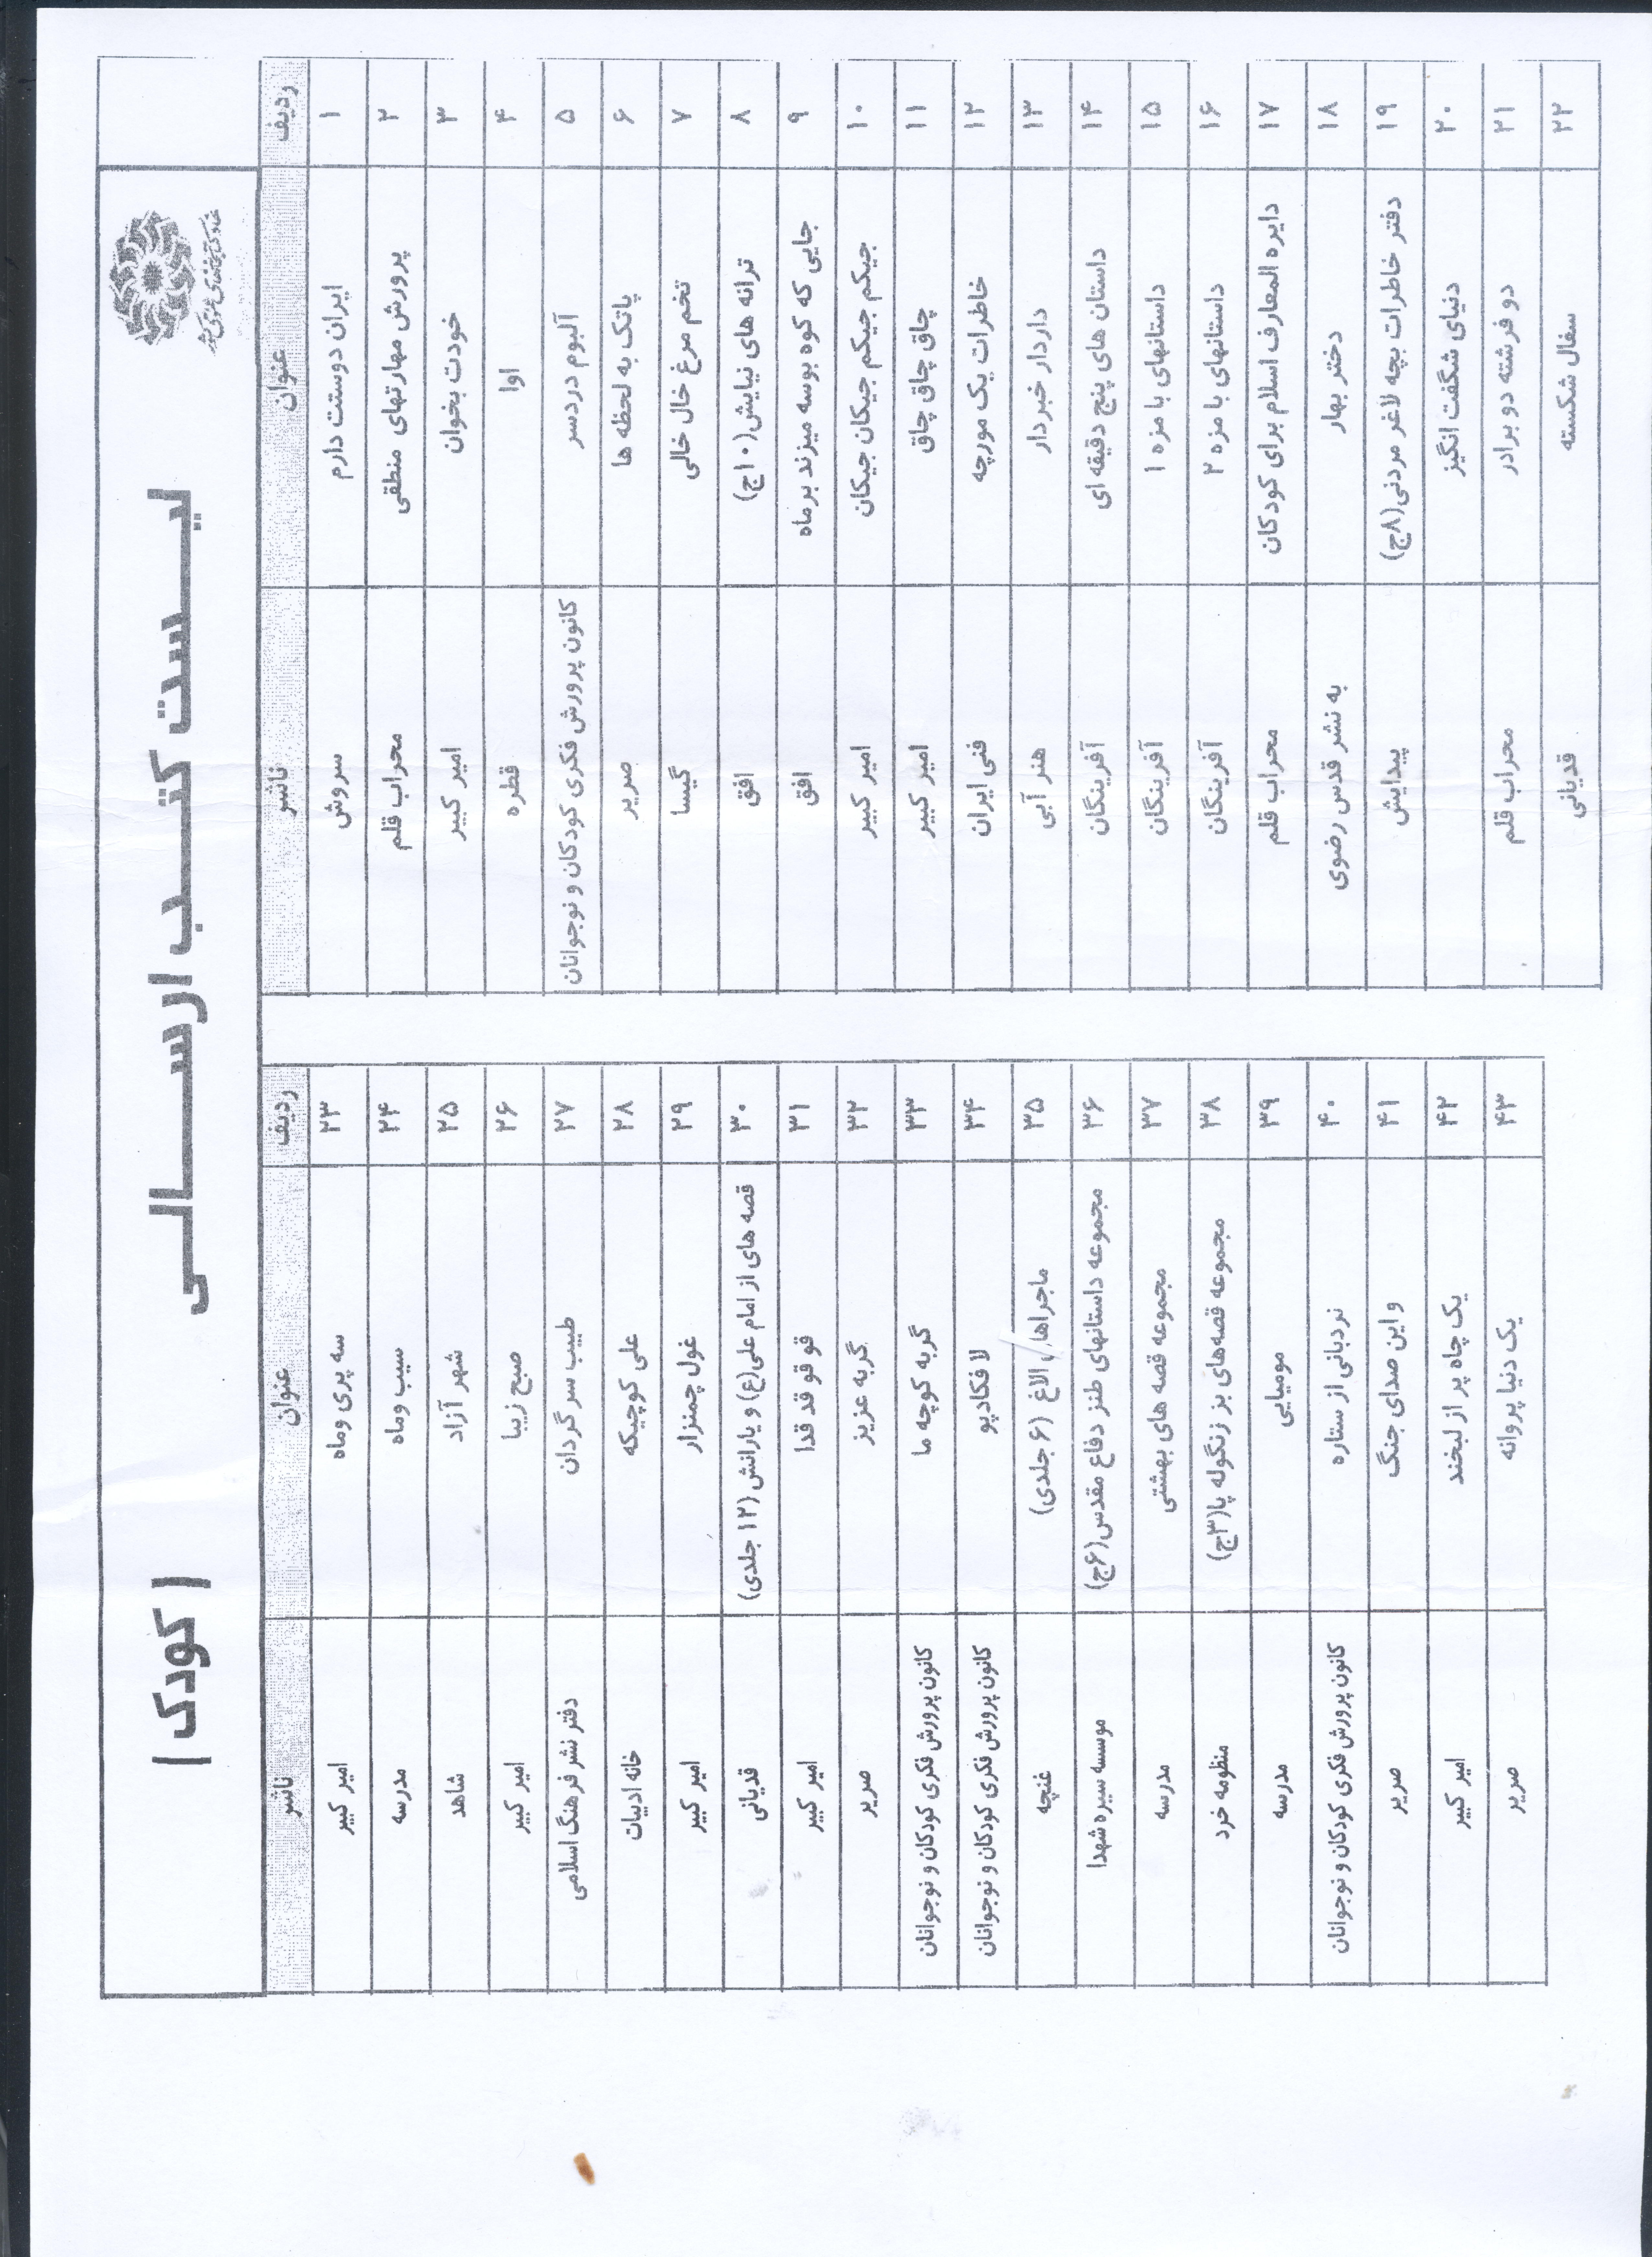 نهاد کتابخانه‌های عمومی کشور
لیست کتب ارسالی
| کودک |
ردیف عنوان ناشر
۱ ایران دوستت دارم سروش
۲ پرورش مهارتهای منطقی محراب قلم
۳ خودت بخوان امیر کبیر
۴ اوا قطره
۵ آلبوم دردسر کانون پرورش فکری کودکان و نوجوانان
۶ پاتک به لحظه ها صریر
۷ تخم مرغ خال خالی گیسا
۸ ترانه های نیایش(۱۰ج) افق
۹ جایی که کوه بوسه میزند بر ماه افق
۱۰ جیکم جیکم جیکان جیکان امیر کبیر
۱۱ چاق چاق چاق امیر کبیر
۱۲ خاطرات یک مورچه فنی ایران
۱۳ داردار خبردار هنر آبی
۱۴ داستان های پنج دقیقه ای آفرینگان
۱۵ داستانهای با مزه ۱ آفرینگان
۱۶ داستانهای با مزه ۲ آفرینگان
۱۷ دایره المعارف اسلام برای کودکان محراب قلم
۱۸ دختر بهار به نشر قدس رضوی
۱۹ دفتر خاطرات بچه لاغر مردنی(۸ج) پیدایش
۲۰ دنیای شگفت انگیز
۲۱ دو فرشته دو برادر محراب قلم
۲۲ سفال شکسته قدیانی
ردیف عنوان ناشر
۲۳ سه پری وماه امیر کبیر
۲۴ سیب وماه مدرسه
۲۵ شهر آزاد شاهد
۲۶ صبح زیبا امیر کبیر
۲۷ طبیب سرگردان دفتر نشر فرهنگ اسلامی
۲۸ علی کوچیکه خانه ادبیات
۲۹ غول چمنزار امیر کبیر
۳۰ قصه های از امام علی(ع) و یارانش(۱۲ جلدی) قدیانی
۳۱ قو قو قد قدا امیر کبیر
۳۲ گربه عزیز صریر
۳۳ گربه کوچه ما کانون پرورش فکری کودکان و نوجوانان
۳۴ لا فکادیو کانون پرورش فکری کودکان و نوجوانان
۳۵ ماجراهای الاغ (۶ جلدی) غنچه
۳۶ مجموعه داستانهای طنز دفاع مقدس(۶ج) موسسه سیره شهدا
۳۷ مجموعه قصه های بهشتی مدرسه
۳۸ مجموعه قصه‌های بز زنگوله پا(۳ج) منظومه خرد
۳۹ مومیایی مدرسه
۴۰ نردبانی از ستاره کانون پرورش فکری کودکان و نوجوانان
۴۱ و این صدای جنگ صریر
۴۲ یک چاه پر از لبخند امیر کبیر
۴۳ یک دنیا پروانه صریر